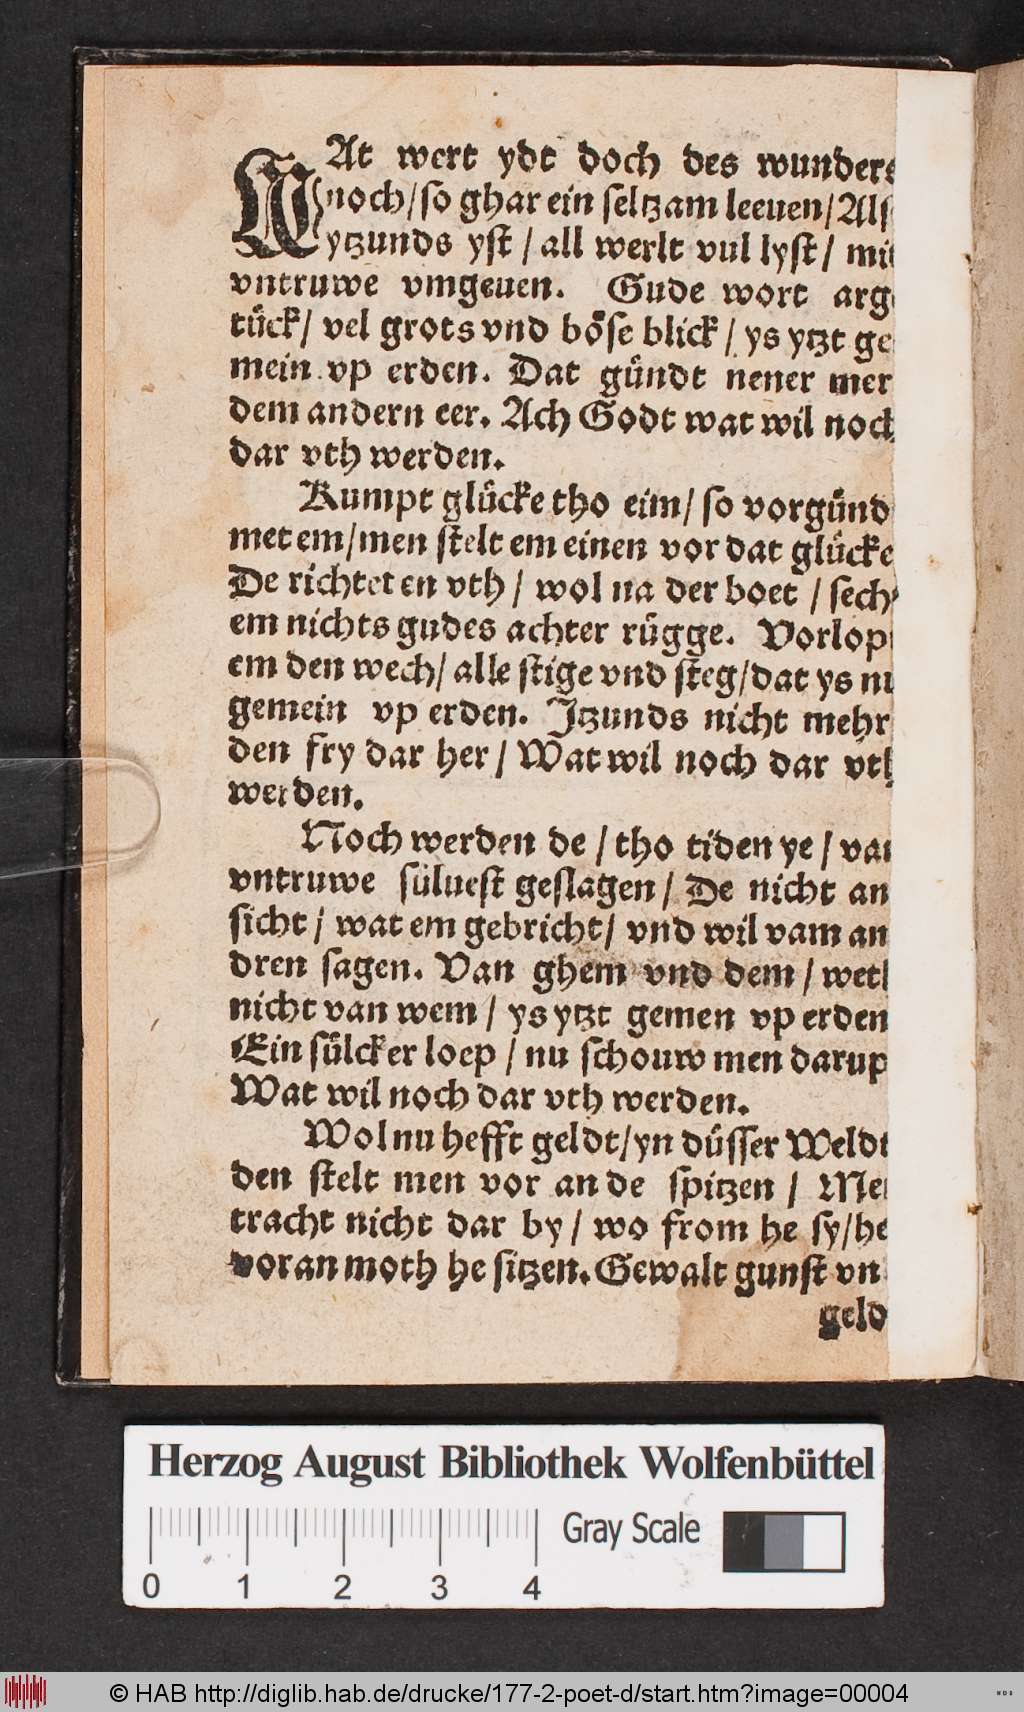 WAt wert ydt doch des wunders
noch/so ghar ein seltzam leeuen/Als
ytzunds yst / all werlt vul lyst / mit
vntruwe vmgeuen. Gude wort arge
tück/ vel grots vnd böse blick / ys ytzt ge
mein vp erden. Dat gündt nener mer
dem andern eer. Ach Godt wat wil noch
dar vth werden.
Kumpt glücke tho eim/ so vorgünd
met em/men stelt em einen vor dat glücke
De richtet en vth / wol na der boet / sech
em nichts gudes achter rügge. Vorlop
em den wech/ alle stige vnd steg/dat ys nu
gemein vp erden. Jtzunds nicht mehr
den fry dar her / Wat wil noch dar vth
werden.
Noch werden de / tho tiden ye / van
vntruwe süluest geslagen / De nicht an
sicht / wat em gebricht/ vnd wil vam an
dren sagen. Van ghem vnd dem / weth
nicht van wem / ys ytzt gemen vp erden
Ein sülcker loep / nu schouw men darup
Wat wil noch dar vth werden.
Wol nu hefft geldt/yn düsser Weldt
den stelt men vor an de spitzen / Men
tracht nicht dar by / wo from he sy/he
voran moth he sitzen. Gewalt gunst vn
geld
Herzog August Bibliothek Wolfenbüttel
Gray Scale
0 1 2 3 4
© HAB http://diglib.hab.de/drucke/177-2-poet-d/start.htm?image=00004